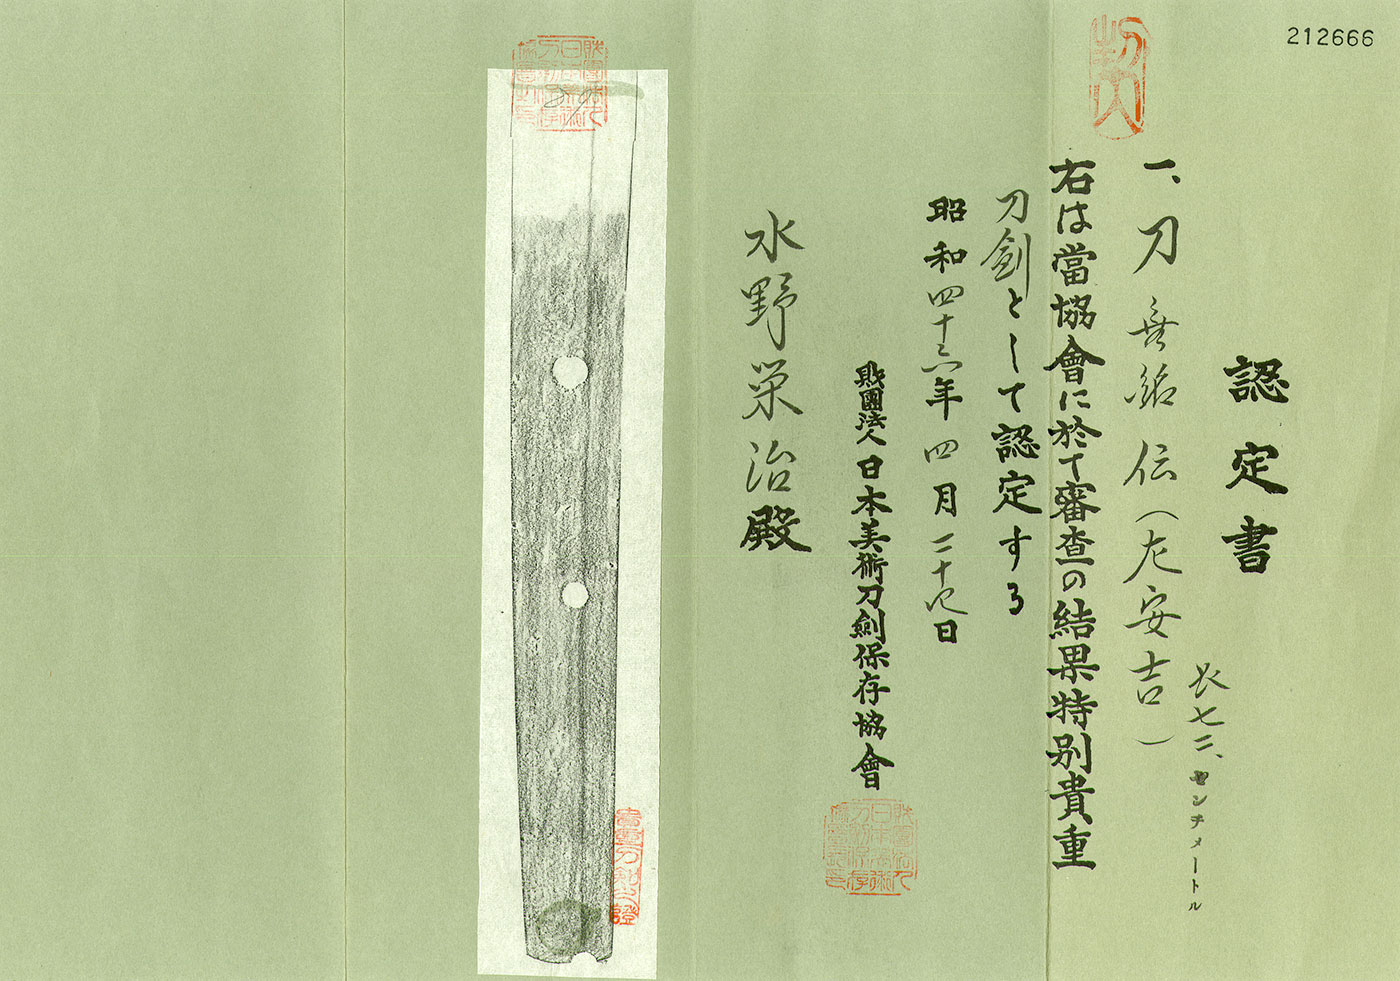 212666
認定書
一、刀 無銘 伝(左安吉)
長七二、センチメートル
右は當協會に於て審査の結果特別貴重
刀剣として認定する
昭和四十六年四月二十九日
財團法人日本美術刀劍保存協會
水野栄治殿